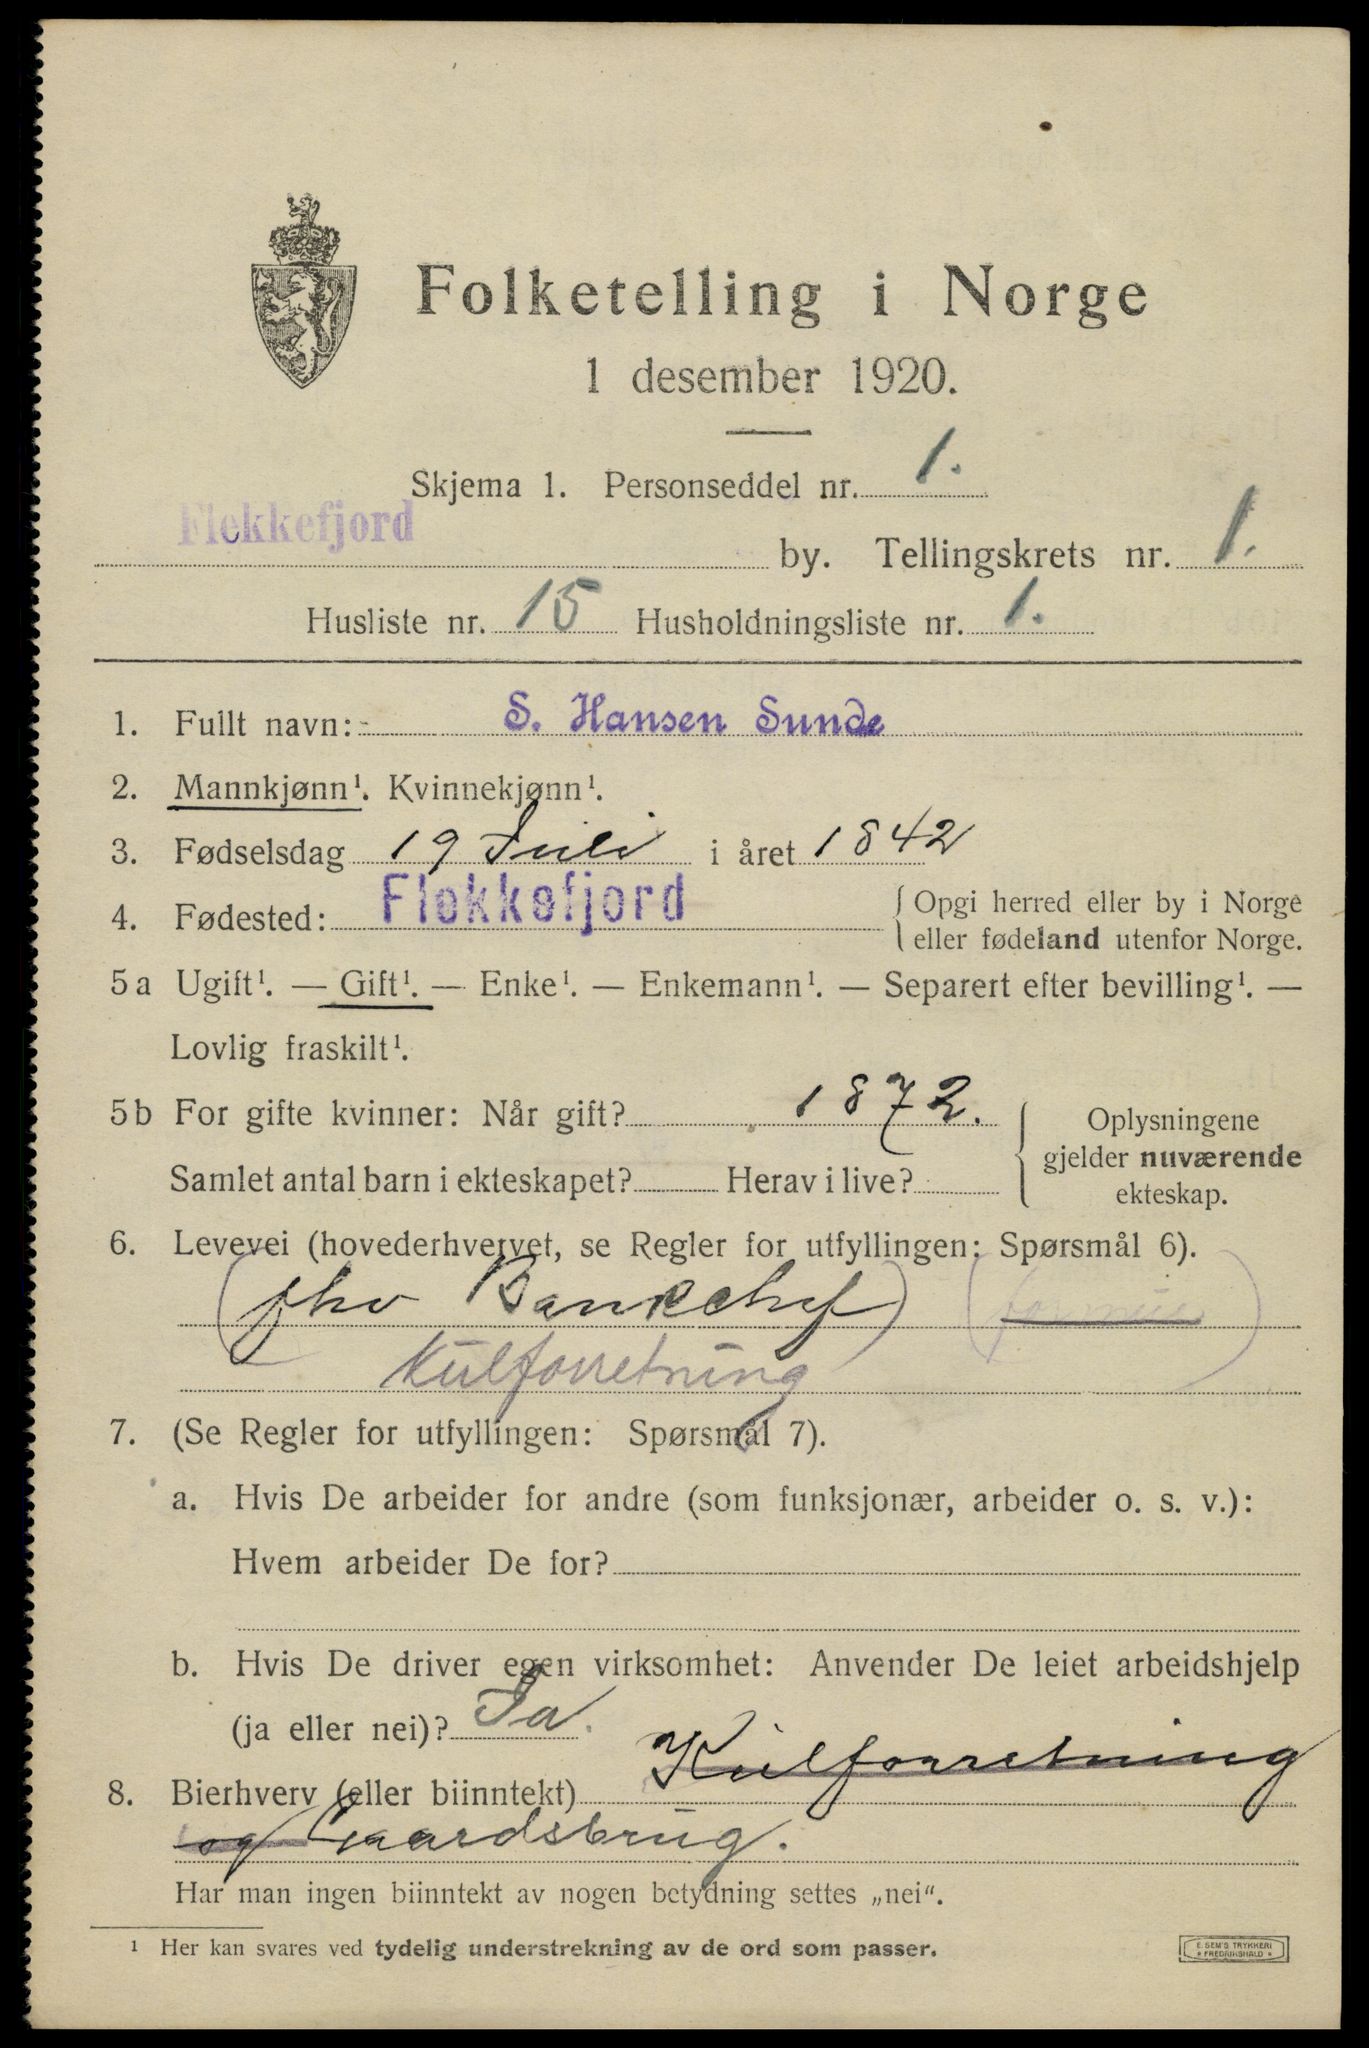 Folketelling i Norge
1 desember 1920.
Skjema 1. Personseddel nr. 1.
Flekkefjord by. Tellingskrets nr. 1.
Husliste nr. 15 Husholdningsliste nr. 1.
1. Fullt navn: S. Hansen Sunde
2. Mannkjønn¹. Kvinnekjønn¹.
3. Fødselsdag 19 Juli i året 1842
4. Fødested: Flekkefjord { Opgi herred eller by i Norge
eller fødeland utenfor Norge.
5 a Ugift¹. — Gift¹. — Enke¹. — Enkemann¹. — Separert efter bevilling¹. —
Lovlig fraskilt¹.
5 b For gifte kvinner: Når gift? 1872. { Oplysningene
gjelder nuværende
ekteskap.
Samlet antal barn i ekteskapet? Herav i live?
6. Levevei (hovederhvervet, se Regler for utfyllingen: Spørsmål 6).
(fhv Bankchef) (formue)
Kulforretning
7. (Se Regler for utfyllingen: Spørsmål 7).
a. Hvis De arbeider for andre (som funksjonær, arbeider o. s. v.):
Hvem arbeider De for?
b. Hvis De driver egen virksomhet: Anvender De leiet arbeidshjelp
(ja eller nei)? Ja.
8. Bierhverv (eller biinntekt) Kulforretning
og Gaardsbrug.
Har man ingen biinntekt av nogen betydning settes „nei“.
¹ Her kan svares ved tydelig understrekning av de ord som passer.
E. SEM'S TRYKKERI
* FREDRIKSHALD *